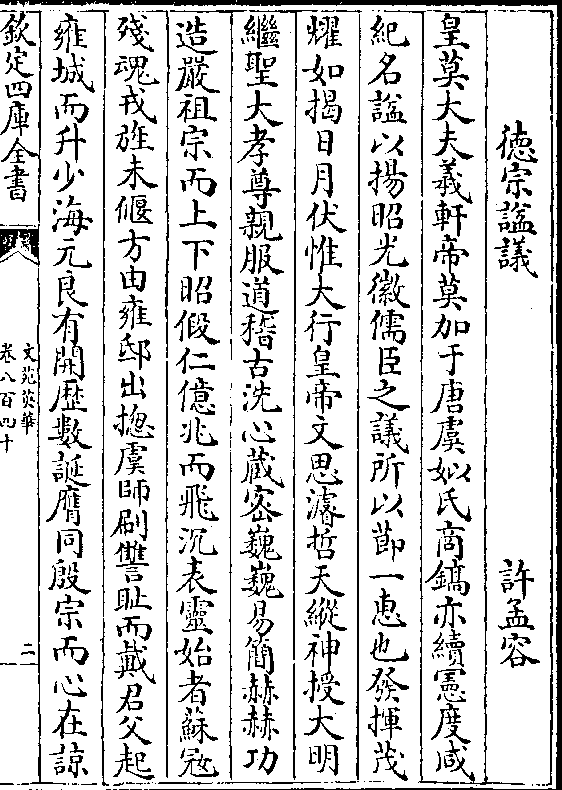 德宗諡議　許孟容
皇莫大夫羲軒帝莫加于唐虞姒氏商鎬亦纘憲度咸
紀名諡以揚昭光徽儒臣之議所以節一恵也發揮茂
燿如揭日月伏惟大行皇帝文思濬哲天縱神授大明
繼聖大孝尊親服道稽古洗心蔵密巍巍易簡赫赫功
造嚴祖宗而上下昭假仁億兆而飛沉表靈始者蘇冦
殘魂戎旌未偃方由雍邸出揔虞師刷讐耻而戴君父起
雍城而升少海元良有開歴數誕膺同殷宗而心在諒
欽定四庫全書
文苑英華
卷八百四十
二